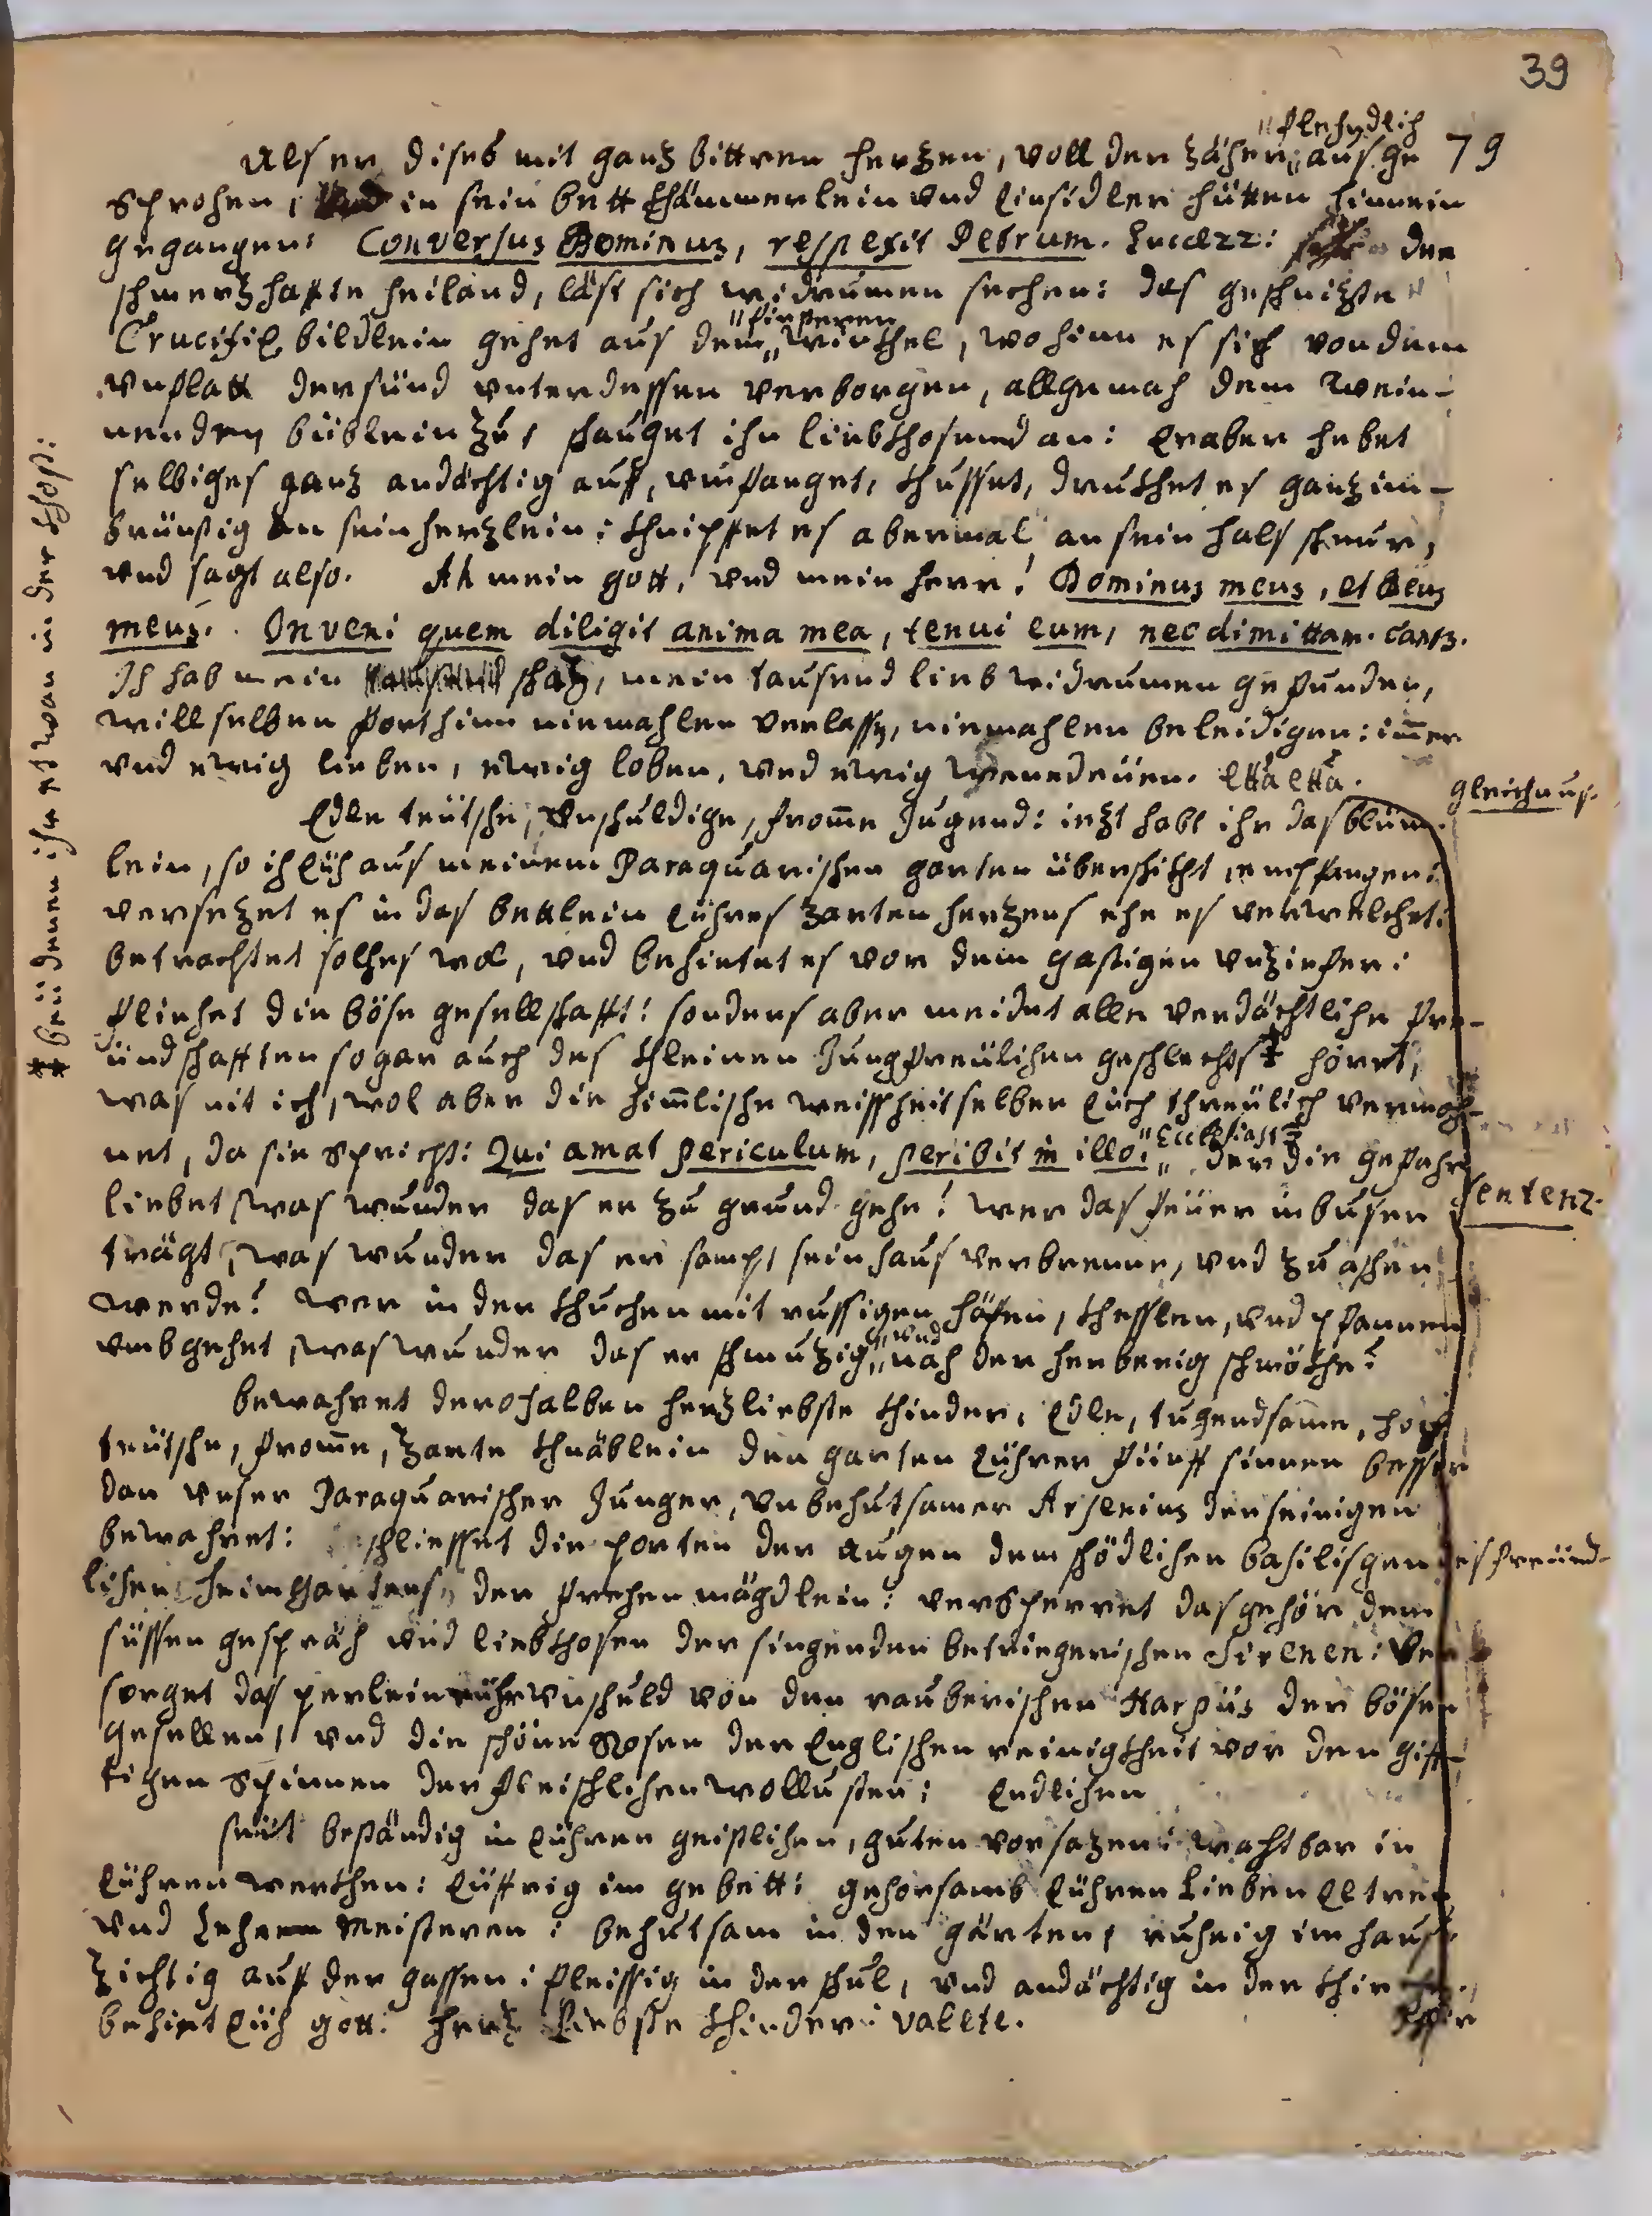 39
"flehendlich
Als er dises mit ganz bittren herzen, voll der zäher,, aus ge 79
sprohen, in sein bett khämmerlein und Einsidler hütten hinnein
gegangen: Conversus Dominus, respexit Petrum. Lucae 22: der
schmerzhaffte heiland, läst sich widrumen sechen: das geschnizte
"finsteren
Crucifix bildlein gehet aus dem,, winkhel, wohinn es sich von dem
unflatt der sünd unterdessen verborgen, allgemach dem wein-
nenden büeblein zu, schauget ihn liebkhosend an: Er aber hebet
selbiges ganz andächtig auf, umfanget, khusset, drukhet es ganz in-
brünstig an sein herzlein: khnipffet es abermal an sein hals schnur,
und sagt also. Ah mein gott, und mein herr! Dominus meus, et Deus
meus. Inveni quem diligit anima mea, tenui eum, nec dimittam. Cant3.
Ih hab mein schaz, mein tausend lieb widrumen gefunden,
will selben forthinn niemahlen verlassen, niemahlen beleidigen: immer
und ewig lieben, ewig loben, und ewig venedeüen. etta etta.
gleichnus.
Edle teütsche, unschuldige, fromme Jugend: iezt habt ihr das blüm-
lein, so ih Eüh aus meinem Paraquarischen garten überschikht, empfangen:
versezet es in das bettlein Eühres zarten herzens ehe es verwelkhet:
betrachtet solhes wol, und behüetet es vor dem gastigen unziefer:
fliehet die böse gesellschafft: sonders aber meidet alle verdächtlihe fre-
ündschafften sogar auch des khleinen Jungfreülihen geschlechts ‡ höret,
was nit ich, wol aber die himmlische weissheit selber Eüch threülich vermah-
net, da sie spricht: Qui amat periculum, peribit in illo: "Ecclesiast3 der die gefahr
sentenz.
liebet, was wunder das er zu grund gehe! wer das feüer in busen
trägt, was wunder das er sampt sein haus verbrenne, und zu aschen
werde? wer in der khuchen mit russigen häfen, khesslen, und pfannen
umbgehet, was wunder das er schmuzig,, und nach der herberig schmökhe?
bewahret derohalben herzliebste khinder, Edle, tugendsamme, hoch
teütsche, fromme, zarte khnäblein den garten Eührer fünff sinnen besser
dan unser Paraquarischer Junger, unbehutsamer Arsenius den seinigen
bewahret: schliesset die porten der augen dem schödlichen basilisgen des freünd-
lihen heimgartens, der frehen mägdlein: versperret das gehör dem
süssen gespräh und liebkhosen der singenden betriegerischen Sirenen: ver
sorget das perlein eühr unschuld von den rauberischen Harpüis der bösen
gesellen, und die schöne Rosen der Englischen reinigkheit vor den giff-
tigen spinnen der fleischlihen wollusten: Endlihen
seüt beständig in Eühren geistlihen, guten vorsazen: wachtbar in
Eühren werkhen: Eüffrig im gebett: gehorsamb Eühren lieben Eltren
und Lehr Meisteren: behutsam in den gärten, ruhrig im haus,
zichtig auf der gassen: fleissig in der schul, und andächtig in der khirchen.
behüet Eüh gott: herz liebste khinder: valete.
** beü denen ihr etwan in der khost: